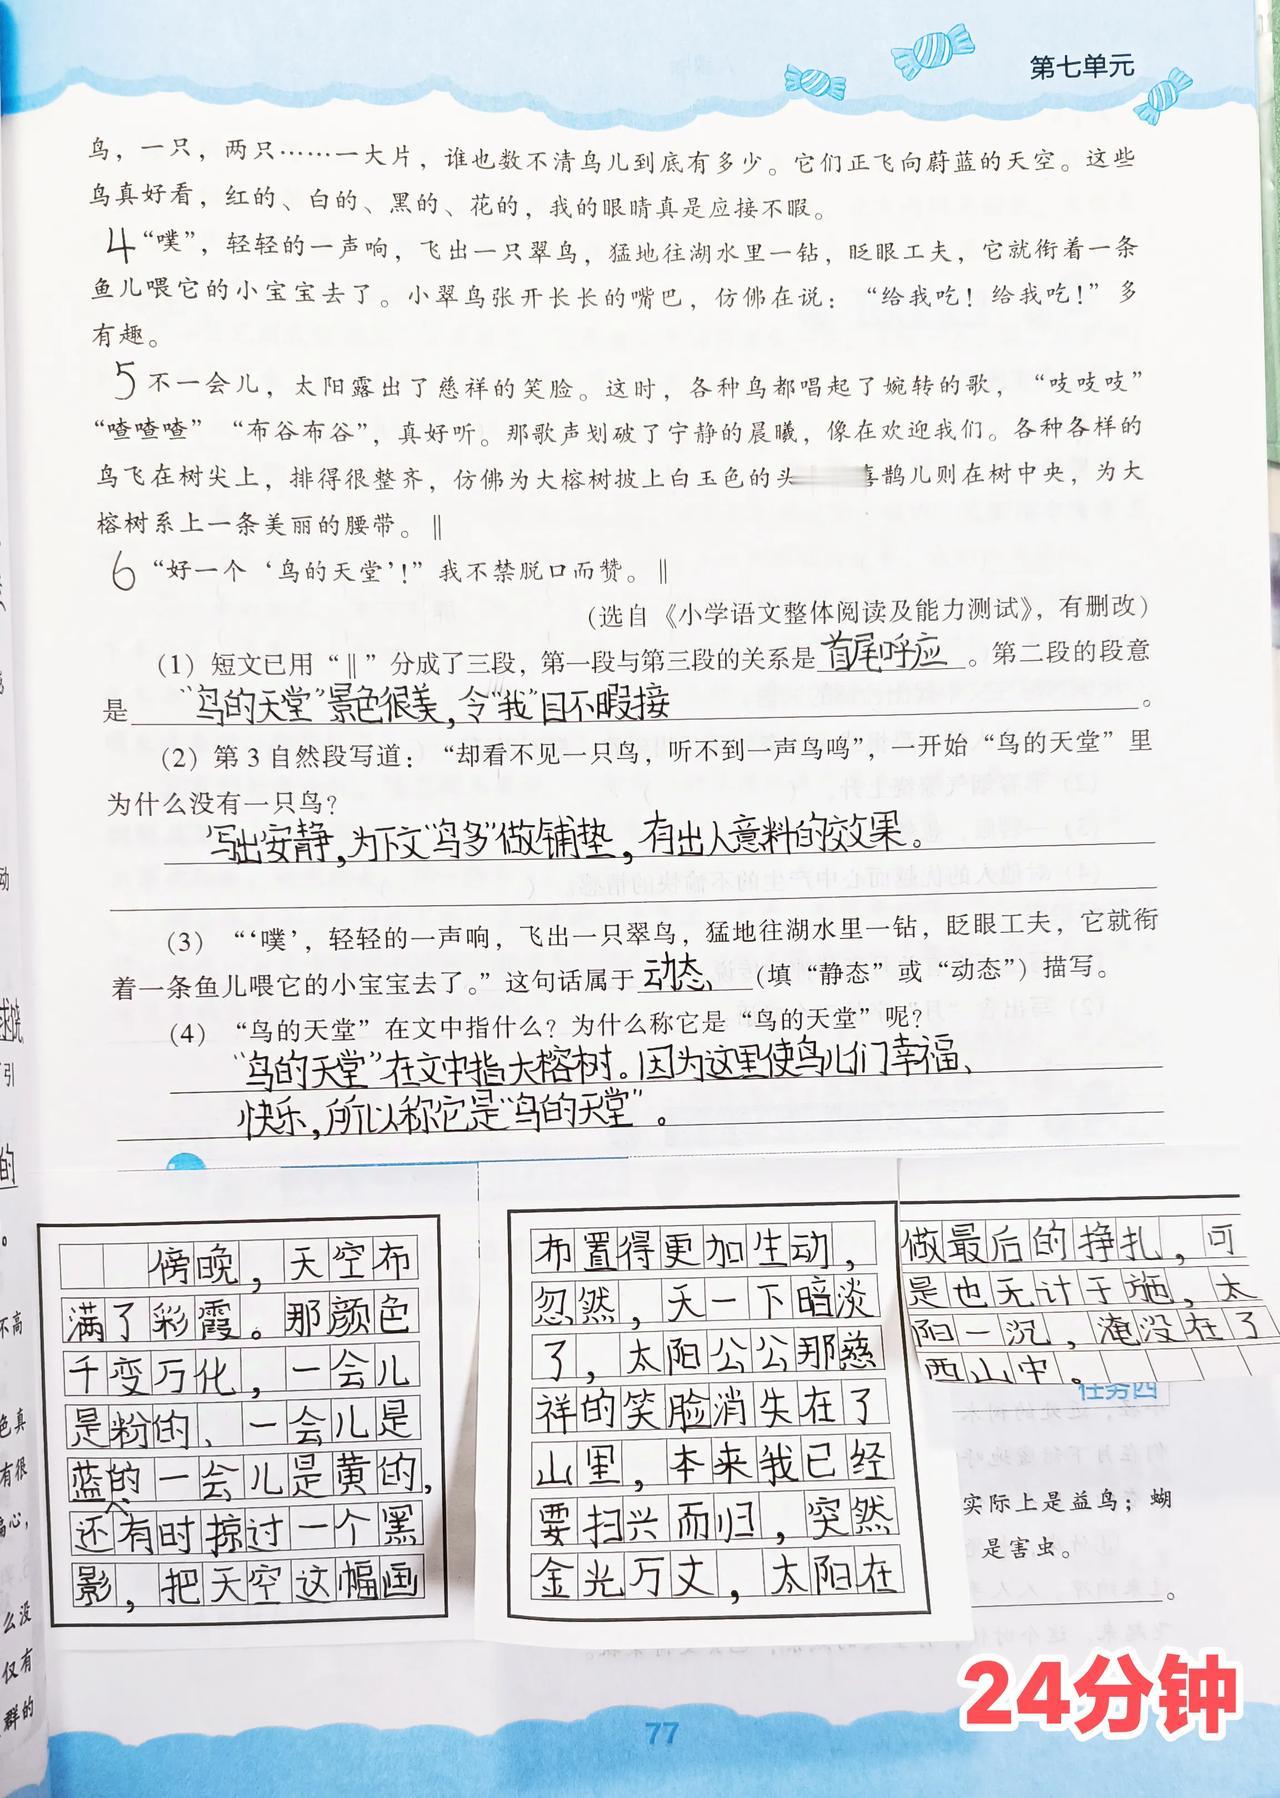 第七单元
鸟，一只，两只……一大片，谁也数不清鸟儿到底有多少。它们正飞向蔚蓝的天空。这些
鸟真好看，红的、白的、黑的、花的，我的眼睛真是应接不暇。
4 “噗”，轻轻的一声响，飞出一只翠鸟，猛地往湖水里一钻，眨眼工夫，它就衔着一条
鱼儿喂它的小宝宝去了。小翠鸟张开长长的嘴巴，仿佛在说：“给我吃！给我吃！”多
有趣。
5 不一会儿，太阳露出了慈祥的笑脸。这时，各种鸟都唱起了婉转的歌，“吱吱吱”
“喳喳喳”“布谷布谷”，真好听。那歌声划破了宁静的晨曦，像在欢迎我们。各种各样的
鸟飞在树尖上，排得很整齐，仿佛为大榕树披上白玉色的头 喜鹊儿则在树中央，为大
榕树系上一条美丽的腰带。‖
6 “好一个‘鸟的天堂’！”我不禁脱口而赞。‖
（选自《小学语文整体阅读及能力测试》，有删改）
（1）短文已用“‖”分成了三段，第一段与第三段的关系是首尾呼应。第二段的段意
是“鸟的天堂”景色很美，令“我”目不暇接。
（2）第3自然段写道：“却看不见一只鸟，听不到一声鸟鸣”，一开始“鸟的天堂”里
为什么没有一只鸟？
写出安静，为下文“鸟多”做铺垫，有出人意料的效果。
（3）“‘噗’，轻轻的一声响，飞出一只翠鸟，猛地往湖水里一钻，眨眼工夫，它就衔
着一条鱼儿喂它的小宝宝去了。”这句话属于动态（填“静态”或“动态”）描写。
（4）“鸟的天堂”在文中指什么？为什么称它是“鸟的天堂”呢？
“鸟的天堂”在文中指大榕树。因为这里使鸟儿们幸福、
快乐，所以称它是“鸟的天堂”。
傍晚，天空布
满了彩霞。那颜色
千变万化，一会儿
是粉的、一会儿是
蓝的、一会儿是黄的，
还有时掠过一个黑
影，把天空这幅画
布置得更加生动，
忽然，天一下暗淡
了，太阳公公那慈
祥的笑脸消失在了
山里，本来我已经
要扫兴而归，突然
金光万丈，太阳在
做最后的挣扎，可
是也无计于施，太
阳一沉，淹没在了
西山中。
任务四
实际上是益鸟；蝴
是害虫。
。
24分钟
77